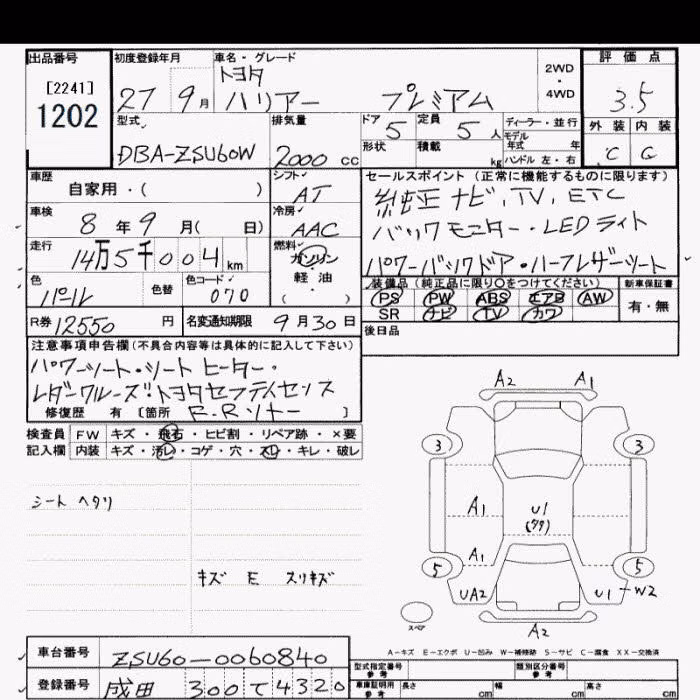 出品番号 初度登録年月 車名・グレード 評価点
[2241] トヨタ 2WD
1202 27 9月 ハリアー プレミアム ・4WD 3.5
型式 排気量 ドア 5 定員 5人 ディーラー・並行 外装 内装
DBA-ZSU60W 2000 cc 形状 積載 kg モデル年式 年 C C
ハンドル 左・右
車歴 シフト セールスポイント (正常に機能するものに限ります)
自家用・( ) AT 純正ナビ、TV、ETC
車検 8年9月( 日) 冷房 AAC バックモニター・LEDライト
走行 14万5千004km 燃料 ガソリン パワーバックドア・ハーフレザーシート
軽油
( )
色 パール 色替 色コード 070 装備品 (純正品に限り○をつけてください) 新車保証書
PS PW ABS エアB AW 有・無
SR ナビ TV カワ
R券 12550円 名変通知期限 9月30日 後日品
注意事項申告欄 (不具合内容等は具体的に記入して下さい)
パワーシート・シートヒーター・
レダークルーズ・トヨタセフティセンス
修復歴 有 [箇所 R.Rソナー ]
検査員 FW キズ・飛石・ヒビ割・リペア跡・×要
記入欄 内装 キズ・汚レ・コゲ・穴・スレ・キレ・破レ
シートヘタリ
キズ E スリキズ
A2 A1
3 3
A1 U1
A1
5 5
UA2 U1-W2
スペア
A2
A-キズ E-エクボ U-凹み W-補修跡 S-サビ C-腐食 XX-交換済
車台番号 ZSU60-0060840
型式指定番号 参考 類別区分番号 参考
登録番号 成田 300 て 4320
車庫証明用 参考 長さ cm 幅 cm 高さ cm